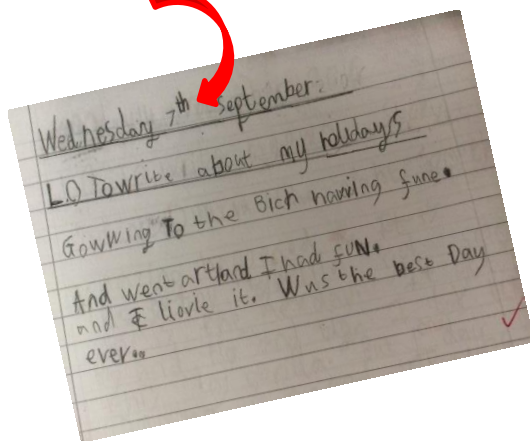 Wednesday 7th September.
LO To write about my holidays
Gowwing To the Bich having fune.
And went artland I had fUN.
and I liovle it. Wus the best Day
ever..